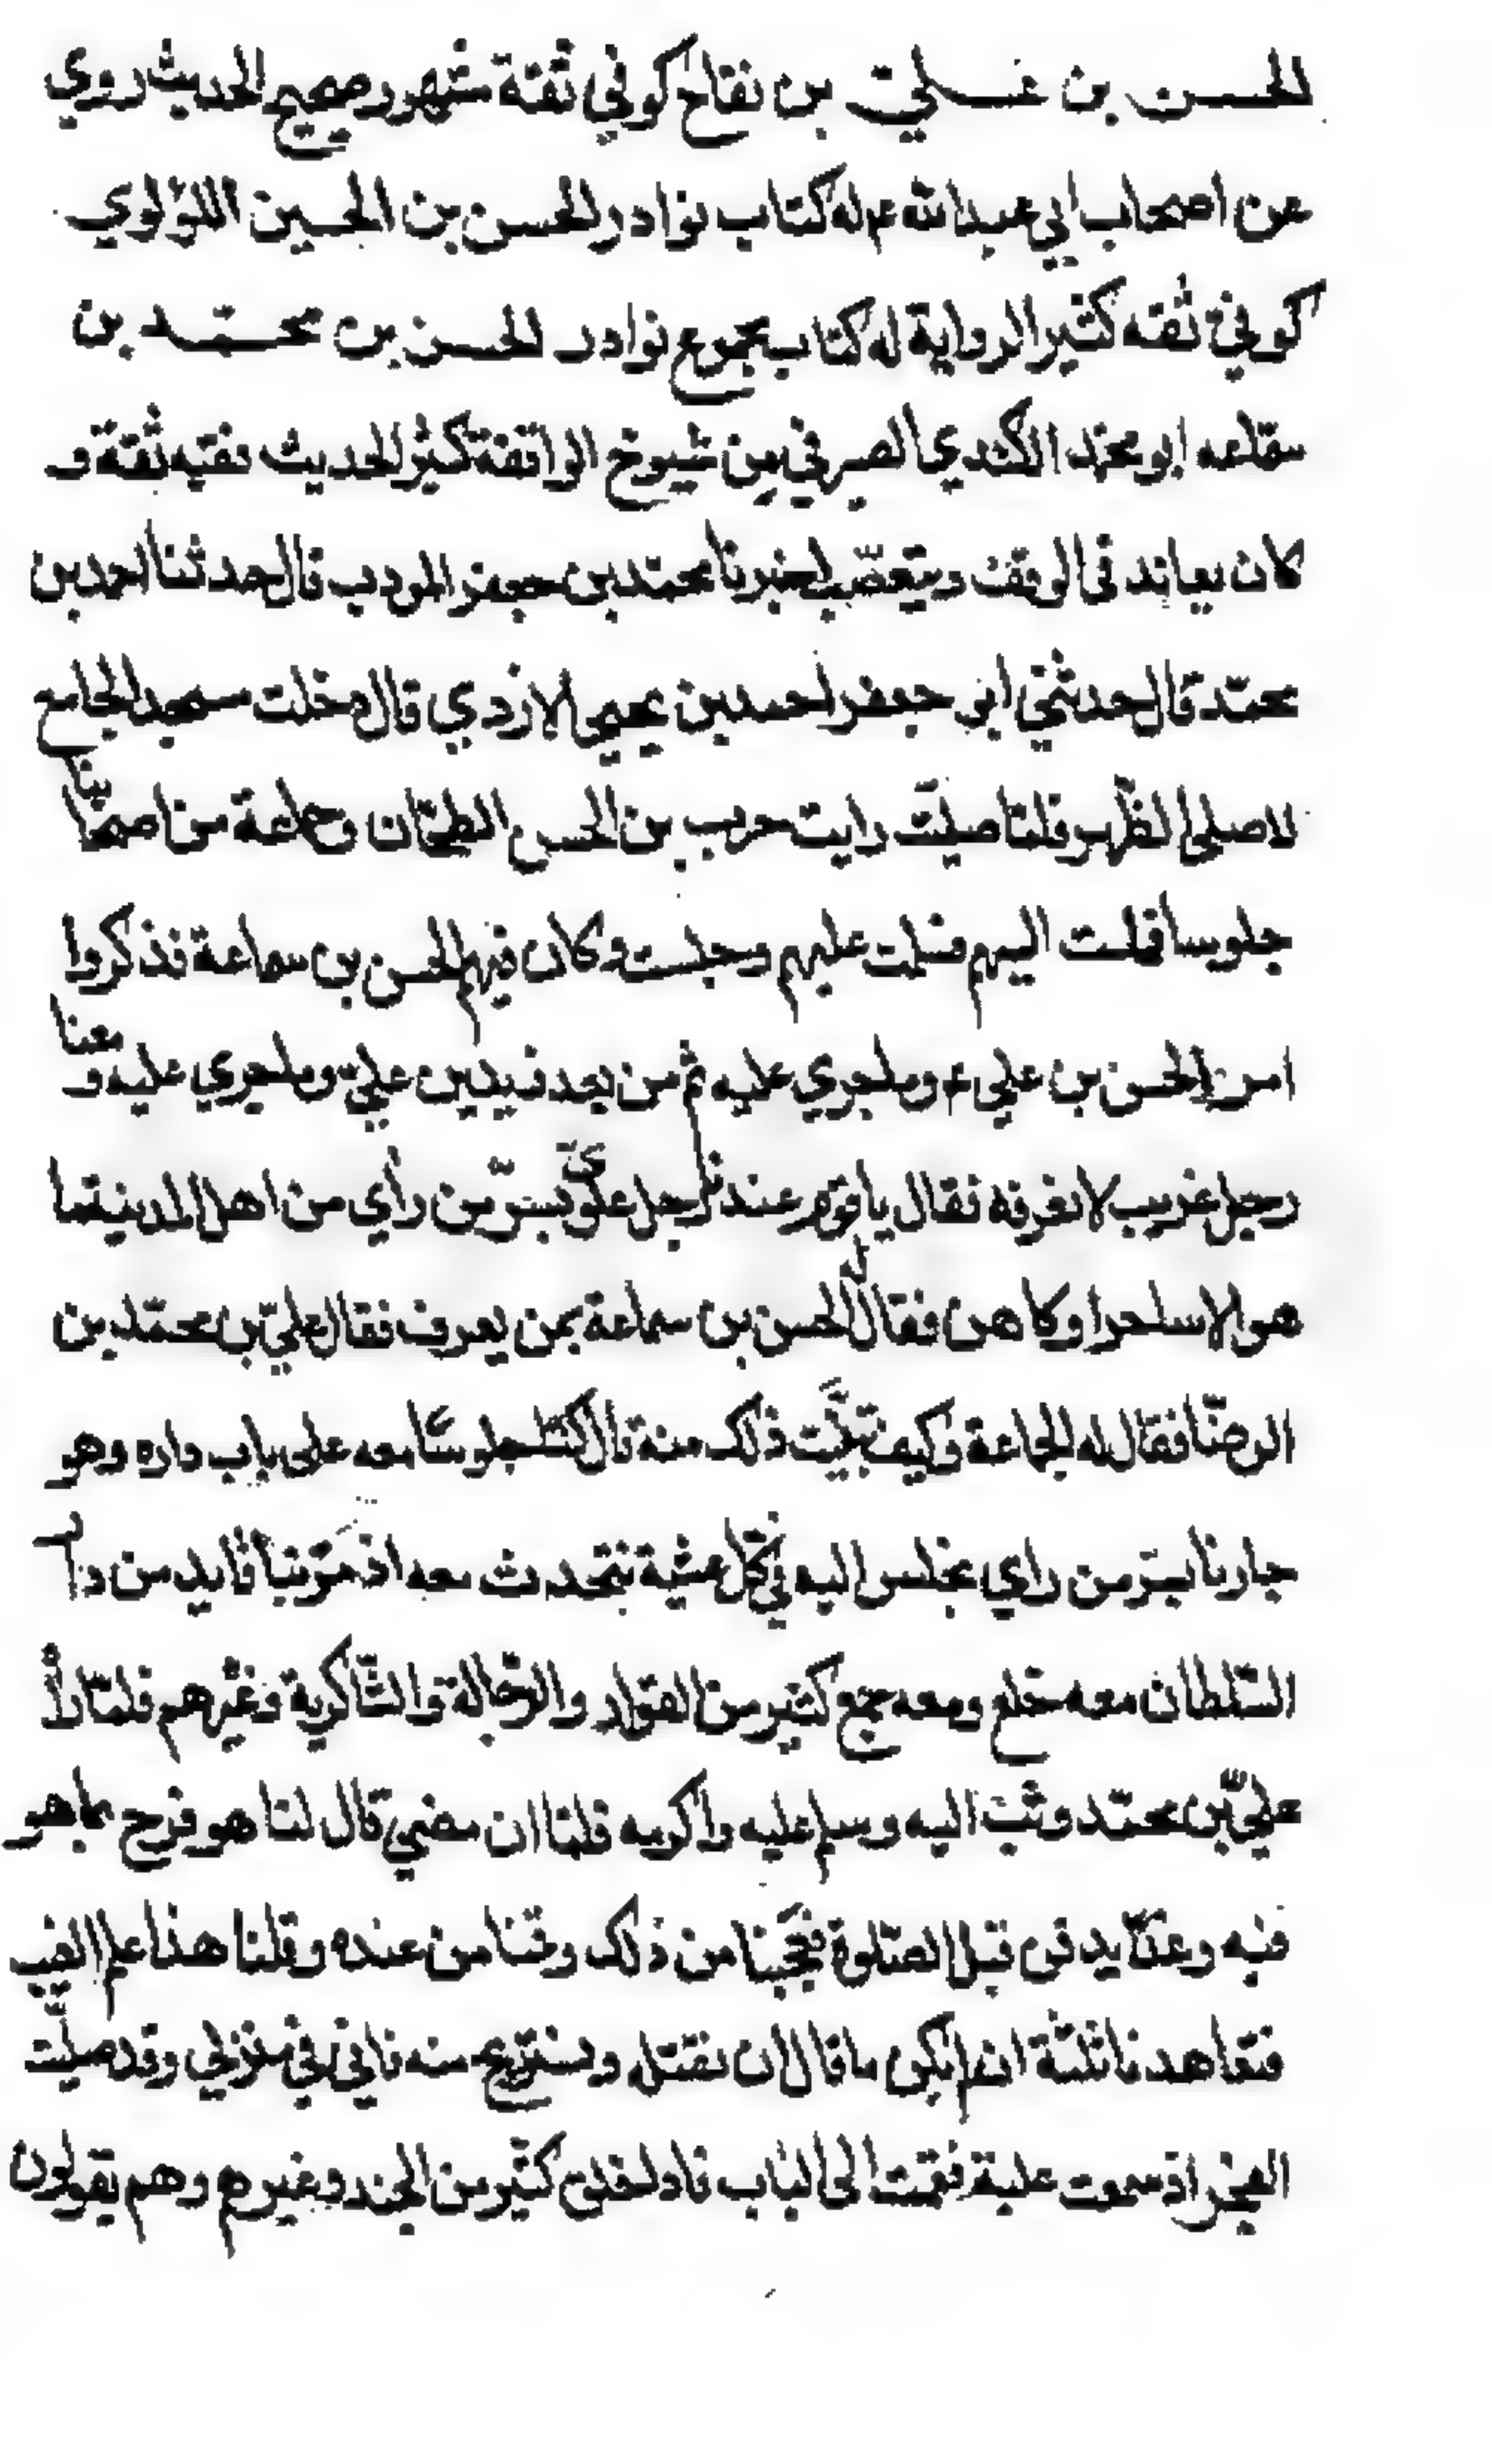 الحسن بن علي بن بقاح كوفي ثقة مشهور صحيح الحديث روي
عن اصحاب ابي عبدالله ع له كتاب نوادر الحسن بن الحسين اللؤلوي
كوفي ثقه كثير الرواية له كتاب مجموع نوادر الحسن بن محمّد بن
سمّاعه ابو محمّد الكندي الصيرفي من شيوخ الواقفة كثير الحديث فقيه ثقة و
كان يعاند في الوقف ويتعصّب اخبرنا محمّد بن جعفر المودب قال حدثنا احمد بن
محمّد قال حدثني ابو جعفر احمد بن يحيي الازدي قال دخلت مسجد الجامع
لاصلي الظهر فلمّا صليّت رايت حرب بن الحسن الطحّان وجماعة من اصحابنا
جلوسا فملت اليهم فسلمت عليهم وجلست وكان فيهم الحسن بن سماعة فذكروا
امر الحسن بن علي ع وما جري عليه ثم من بعد زيد بن علي وما جري عليه ومعنا
رجل غريب لا نعرفه فقال يا قوم عندنا رجل علويّ بسرّ من رأي من اهل المدينة ما
هو الا ساحر او كاهن فقال له الحسن بن سماعة بمن يعرف فقال علي بن محمّد بن
الرضّا فقال له الجماعة وكيف تبيّنت ذلك منه قال كنّا جلوسًا معه على باب داره وهو
جارنا بسرّ من راي نجلس اليه في كل عشية نتحدث معه اذ مرّ بنا قايد من دار
السّلطان معه خلع ومعه جمع كثير من القوّاد والرّجالة والشّاكرية وغيرهم فلمّا راه
عليّ بن محمّد وثب اليه وسلم عليه واكرمه فلمّا ان مضي قال لنا هو فرح بما هو
فيه وغدًا يدفن قبل الصّلوة فعجبنا من ذلك وقمنا من عنده وقلنا هذا علم الغيب
فتعاهدنا ثلثة ان لم يكن ما قال ان نقتله ونستريح منه فاني في منزلي وقد صليّت
الفجر اذ سمعت غلبة فقمت الى الباب فاذا خلق كثير من الجند وغيرهم وهم يقولون